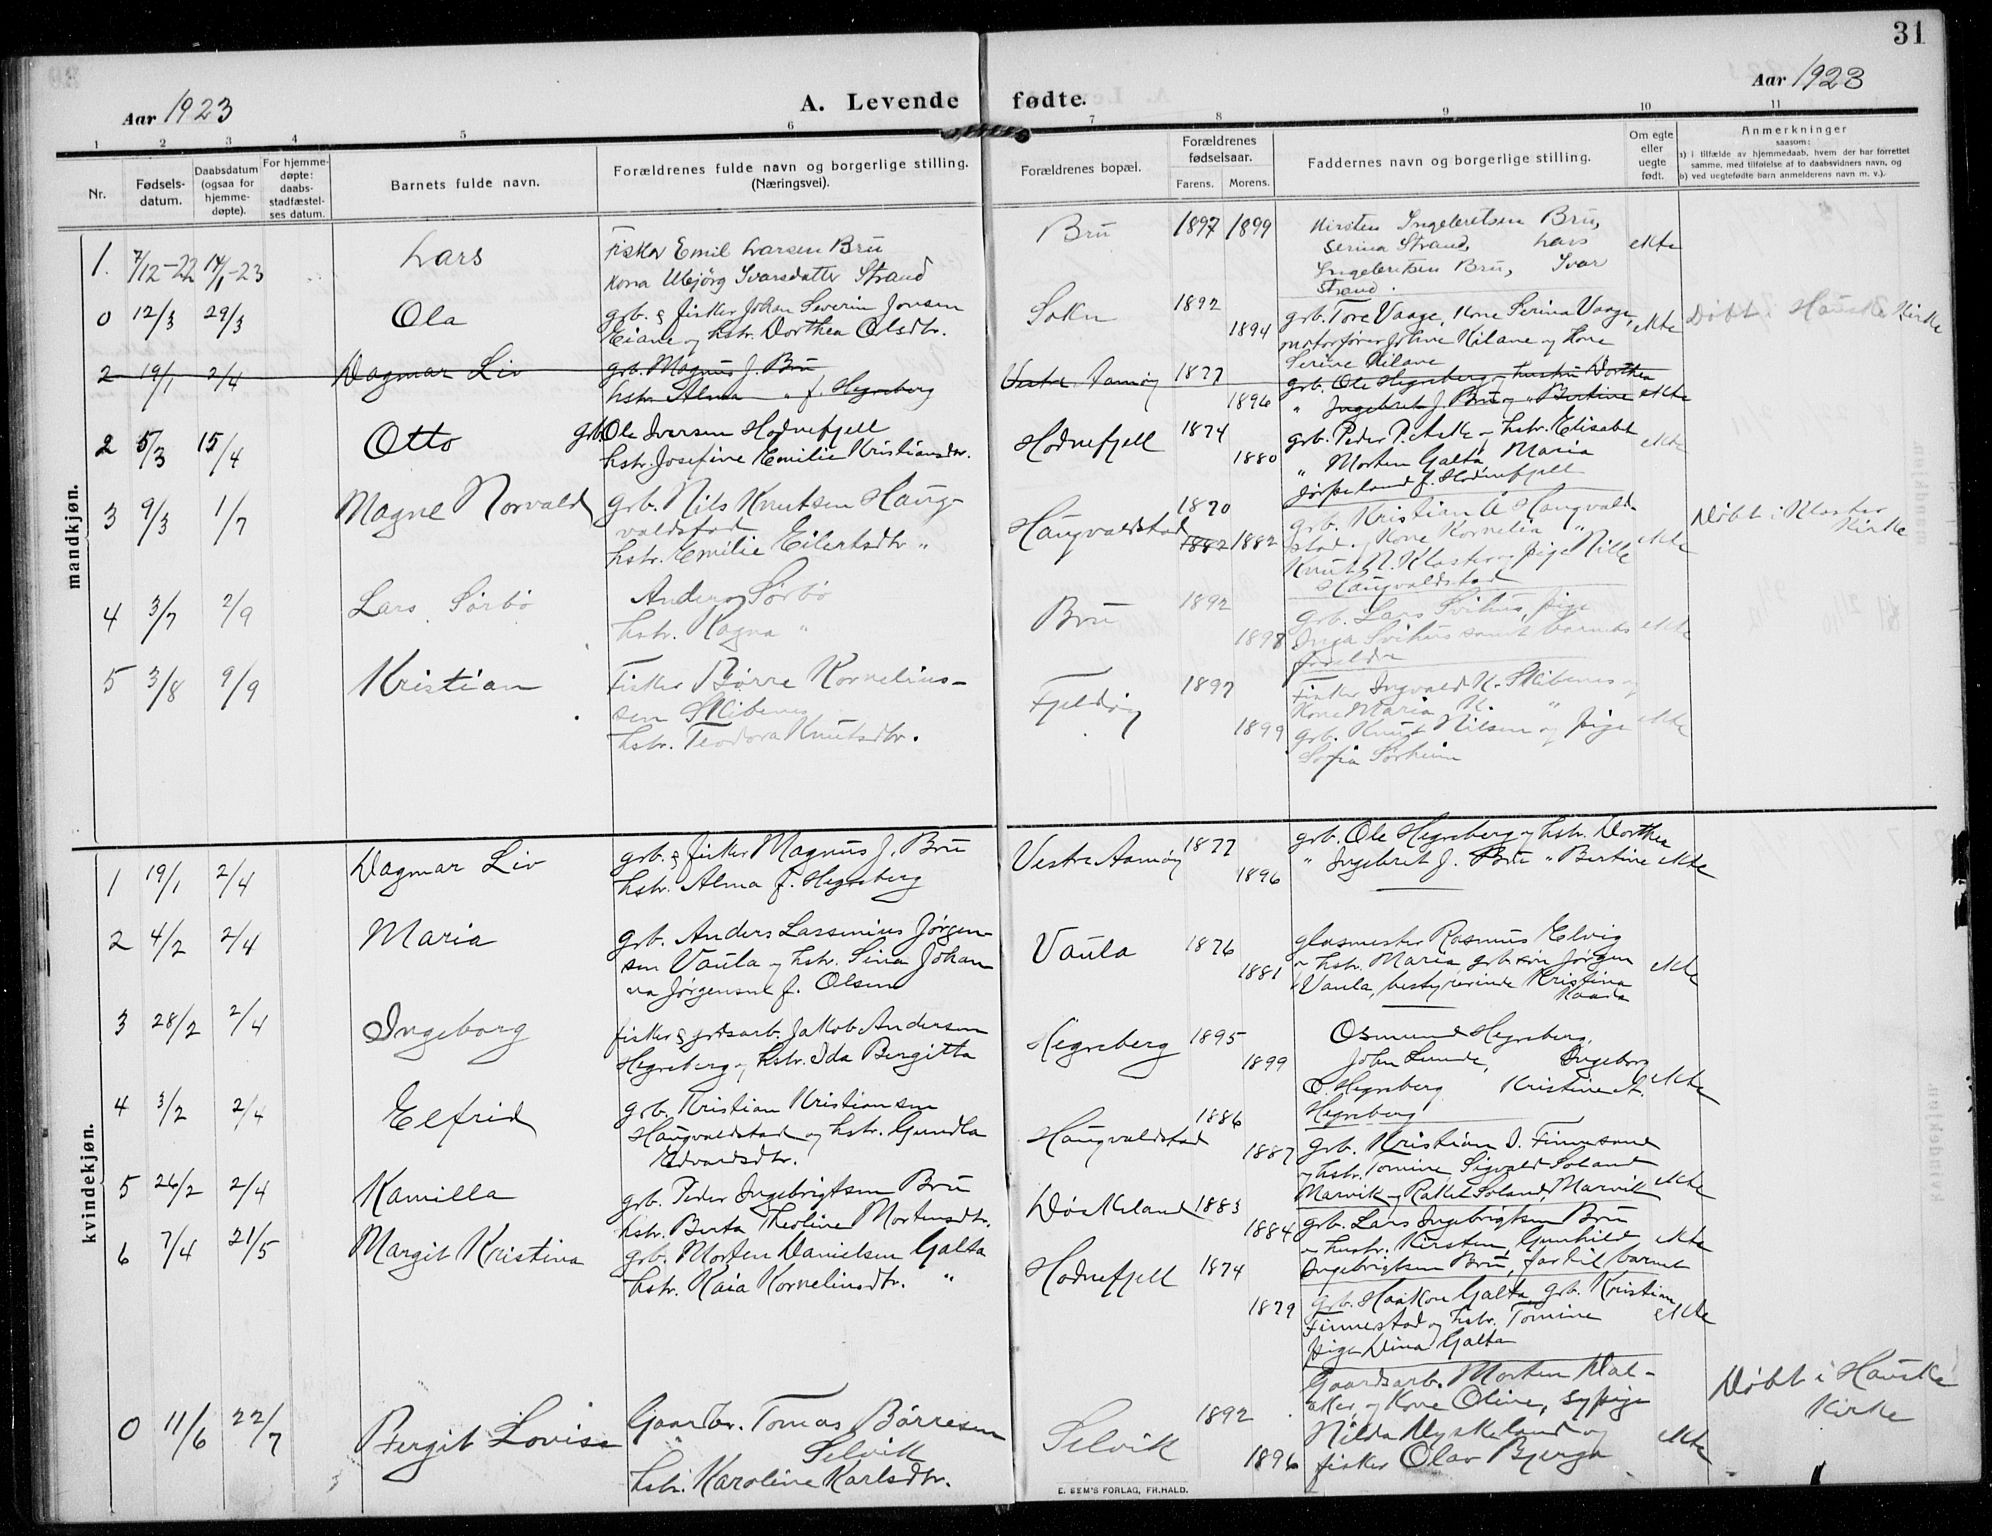 31
Aar 1923
A. Levende fødte.
Aar 1923
1 2 3 4 5 6 7 8 9 10 11
Nr.
Fødsels-
datum.
Daabsdatum
(ogsaa for
hjemme-
døpte).
For hjemme-
døpte:
daabs-
stadfæstel-
ses datum.
Barnets fulde navn.
Forældrenes fulde navn og borgerlige stilling.
(Næringsvei).
Forældrenes bopæl.
Forældrenes
fødselsaar.
Farens. Morens.
Faddernes navn og borgerlige stilling.
Om egte
eller
uegte
født.
Anmerkninger
saasom:
a) i tilfælde av hjemmedaab, hvem der har forrettet
samme, med tilføielse af to daabsvidners navn, og
b) ved uegtefødte barn anmelderens navn m. v.).
mandkjøn.
1. 7/12-22 14/1-23 Lars
Fisker Emil Larsen Bru
Kona Ubjørg Ivarsdatter Strand
Bru 1897 1899
Kirsten Ingebretsen Bru,
Serina Strand, Lars
Ingebretsen Bru, Ivar
Strand.
ekte
0 12/3 29/3 Ola
grb. & fisker Johan Severin Jonsen
Eiane og hstr. Dorthea Olsdtr.
Sokn 1892 1894
grb. Tore Vaage, Kone Serina Vaage,
motorfører Johne Kilane og Kone
Serine Kilane
ekte
Døbt i Hauske Kirke
2 19/1 2/4 Dagmar Liv
grb. Magnus J. Bru
hstr. Alma " f. Hegreberg
Vestre Aamøy 1877 1896
grb. Ole Hegreberg og hustru Dorthea
" Ingebret J. Bru og " Bertine
ekte
2 5/3 15/4 Otto
grb. Ole Iversen Hodnefjell
hstr. Josefine Emilie Kristiansdtr.
Hodnefjell 1874 1880
grb. Peder P. Aske og hstr. Elisabet
" Morten Galta, Maria
Jørpeland f. Hodnefjell
ekte
3 9/3 1/7 Magne Norvald
grb. Nils Knutsen Haug-
valdstad
hstr. Emilie Eilertsdtr "
Haugvaldstad 1870 1882 1882
grb. Kristian A Haugvald-
stad og Kone Kornelia "
Knut N. Kloster og pige Nille
Haugvaldstad
ekte
Døbt i Kloster
Kirke
4 3/7 2/9 Lars Sørbø
Anders Sørbø
hstr. Ragna "
Bru 1892 1898
grb. Lars Svihus, pige
Inga Svihus samt barnets
foreldre
ekte
5 3/8 9/9 Kristian
Fisker Børre Kornelius-
sen Skibenes
hstr. Teodora Knutsdtr.
Fjeldøy 1897 1899
Fisker Ingvald K. Skibenes og
Kone Maria K. "
grb. Knut Nilsen og pige
Sofia Sørheim
ekte
kvindekjøn.
1 19/1 2/4 Dagmar Liv
grb. & fisker Magnus J. Bru
hstr. Alma f. Hegreberg
Vestre Aamøy 1877 1896
grb. Ole Hegreberg og hstr. Dorthea
" Ingebret J. Bru " Bertine
ekte
2 4/2 2/4 Maria
grb. Anders Lassenius Jørgen-
sen Vaula og hstr. Sina Johan-
na Jørgensen f. Olsen
Vaula 1876 1881
glasmester Rasmus Elvig
og hstr. Maria grb. søn Jørgen
Vaula, bestyrerinde Kristina
Kaada
ekte
3 28/2 2/4 Ingeborg
fisker & jordsarb. Jakob Andersen
Hegreberg og hstr. Ida Bergitta
Hegreberg 1895 1899
Osmund Hegreberg,
John Lunde, Ingeborg
O. Hegreberg Kristine A.
Hegreberg
ekte
4 3/2 2/4 Elfrid
grb. Kristian Kristiansen
Haugvaldstad og hstr. Gundla
Edvardsdtr.
Haugvaldstad 1886 1887
grb. Kristian I. Finnesand
og hstr. Tomine Sigvald Soland
Marvik og Rakel Soland, Marvik
ekte
5 26/2 2/4 Kamilla
grb. Peder Ingebrigtsen Bru
hstr. Berta Theoline Mortensdtr.
Døskeland 1883 1884
grb. Lars Ingebrigtsen Bru
og hustr. Kirsten, Gunhild
Ingebrigtsen Bru, far til barnet
ekte
6 7/4 21/5 Margit Kristina
grb. Morten Danielsen Galta
hstr. Kaia Korneliusdtr. "
Hodnefjell 1874 1879
grb. Haakon Galta grb. Kristian
Finnestad og hstr. Tomine
pige Dina Galta
ekte
0 11/6 22/7 Bergit Lovise
Gaardbr. Tomas Børresen
Selvik
hstr. Karoline Karlsdtr.
Selvik 1892 1896
Gaardsarb. Morten Dal-
aker og Kone Oline, sypige
Hilda Myskeland og
fisker Olav Bjerga
ekte
Døbt i Hauske
Kirke
E. SEM'S FORLAG, FR.HALD.